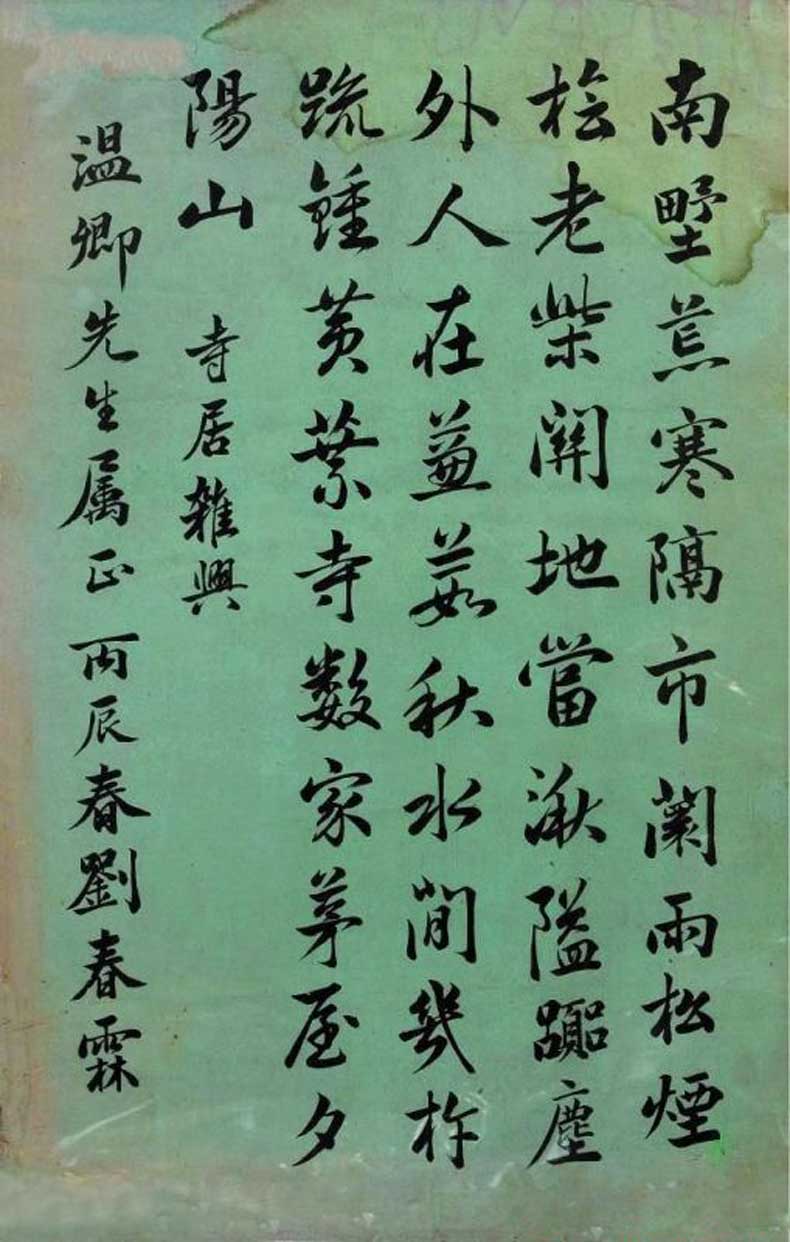 南墅荒寒隔市闤雨松煙
桧老柴關地當湫隘躅塵
外人在蒹葭秋水間幾杵
疏鍾黄葉寺数家茅屋夕
陽山 寺居雜興
温卿先生属正丙辰春劉春霖